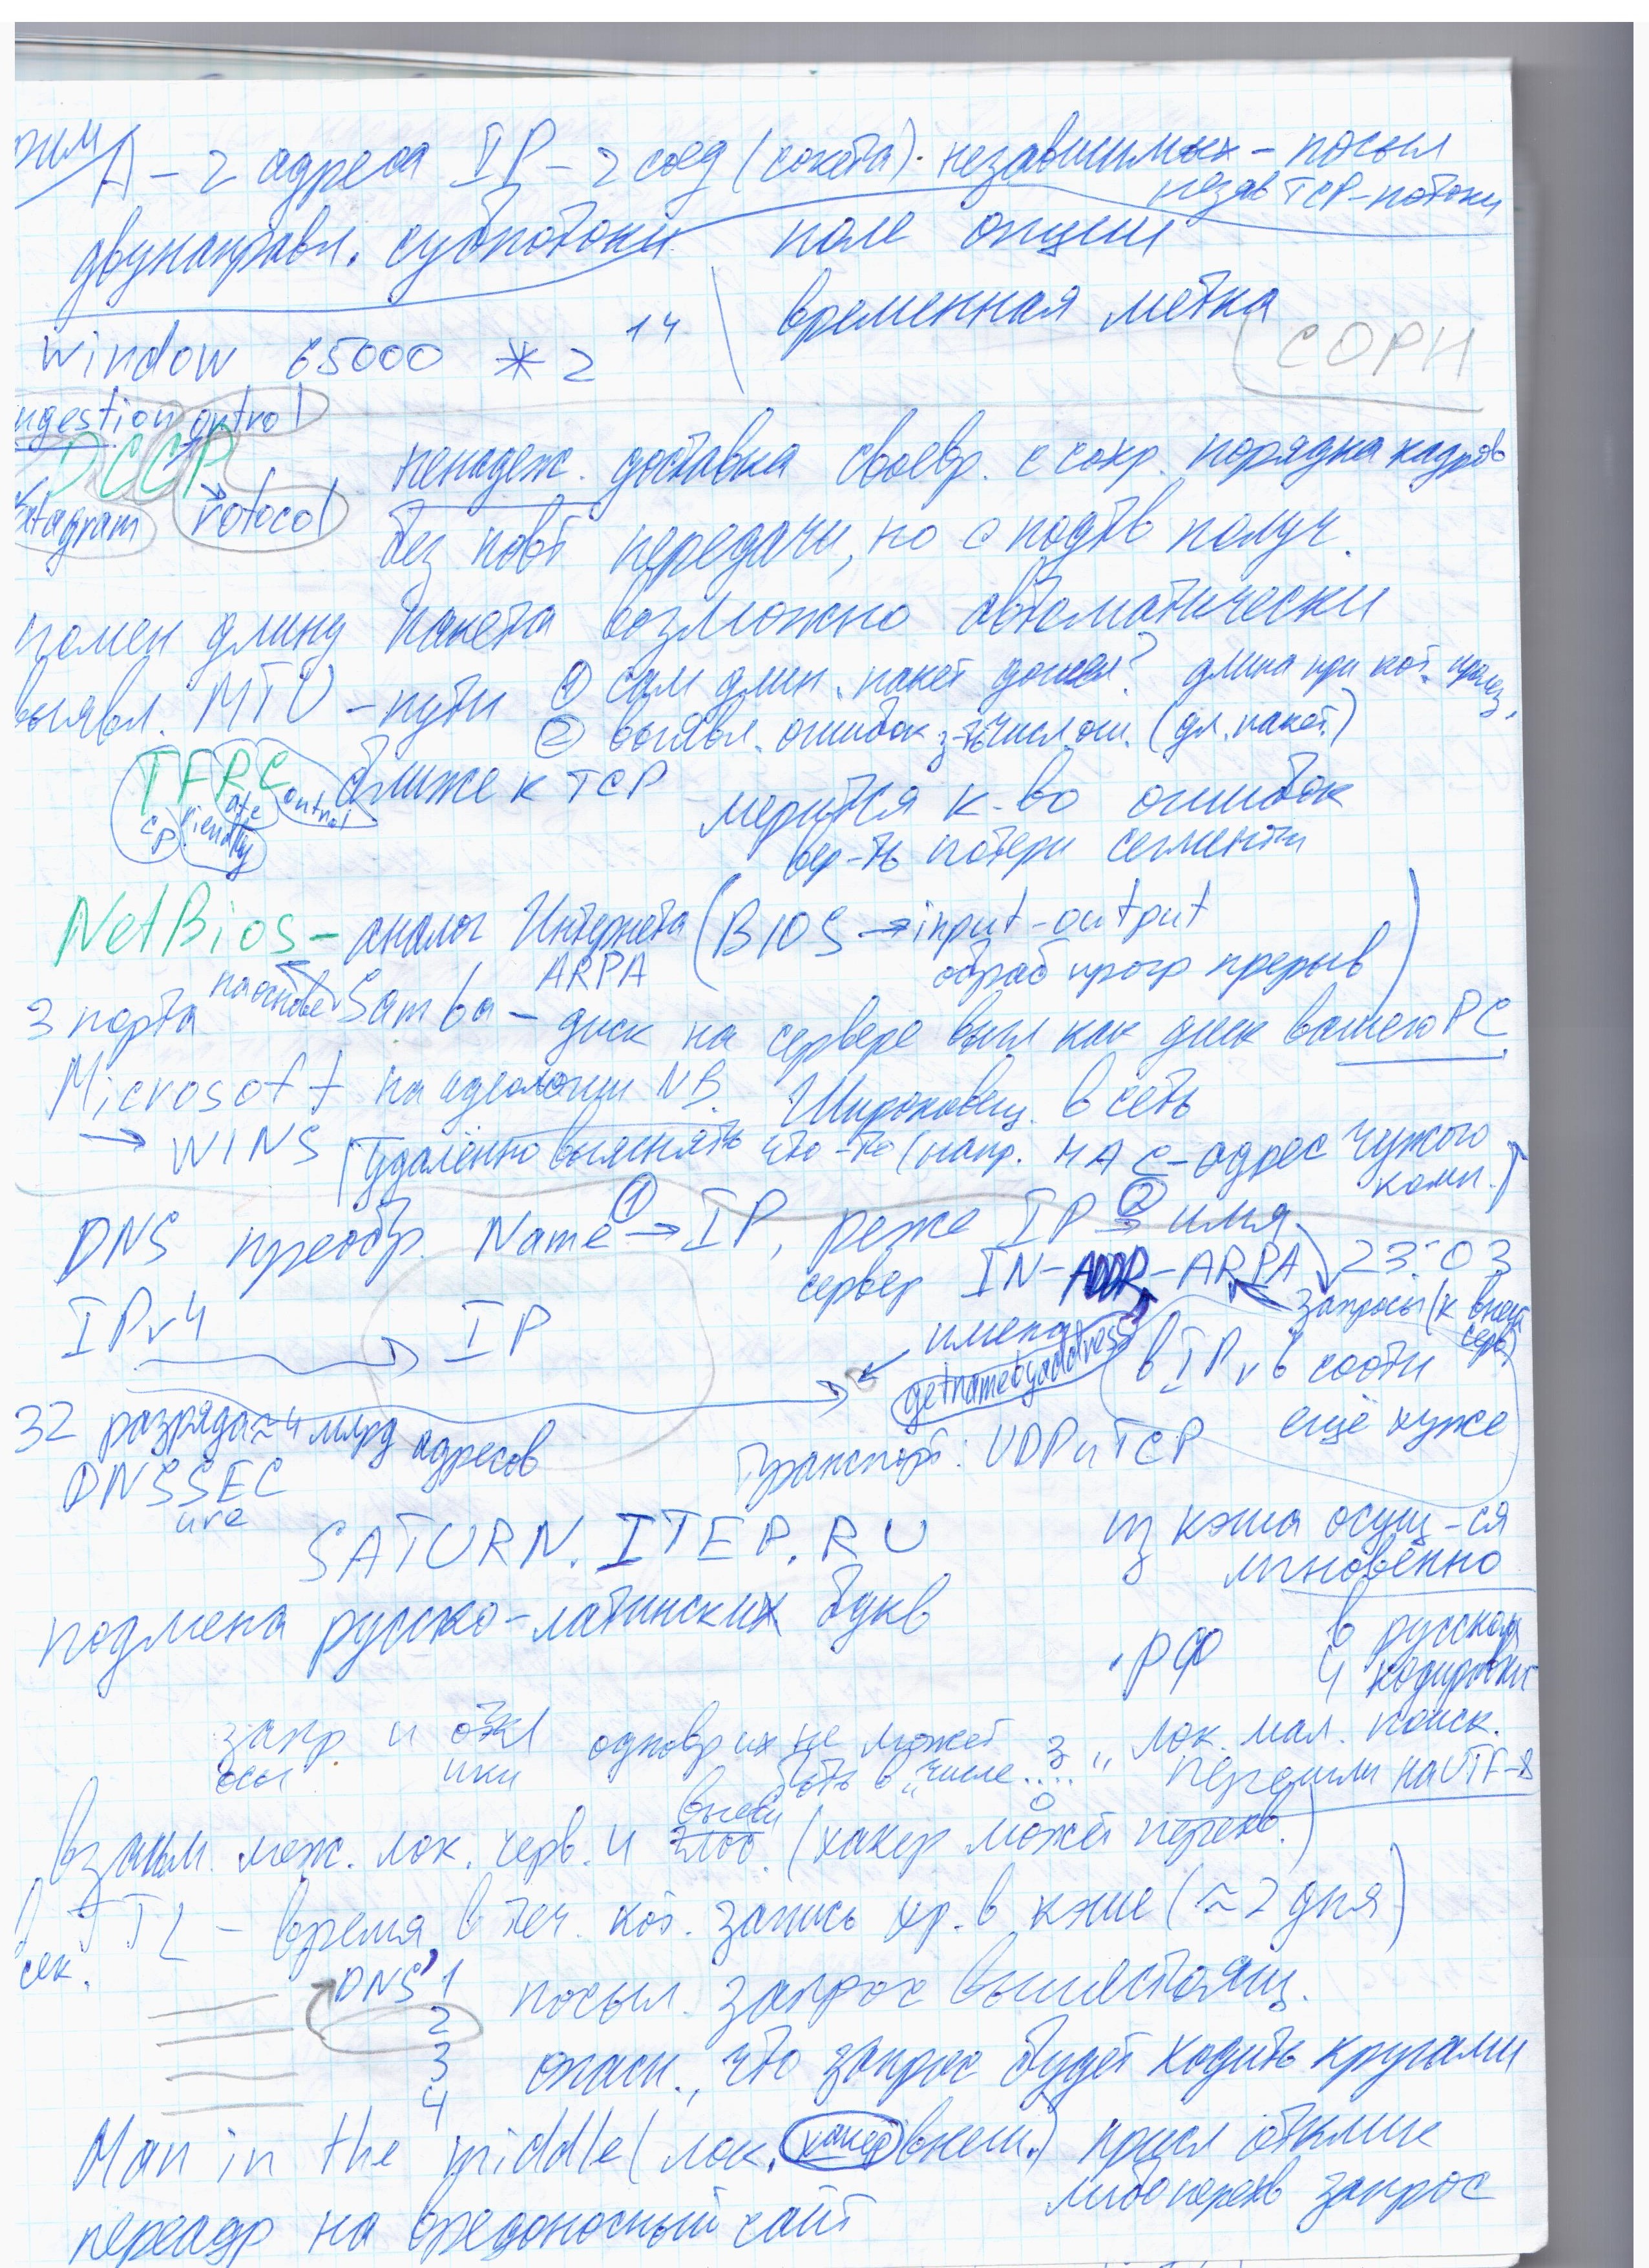 А – 2 адреса IP – 2 соед (сокета). независимых – посыл
незав TCP-потоки
двунаправл. субпотоки поле опции
временная метка
window 65000 * 2 14
СОРМ
ngestion ontrol
DCCP ненадеж. доставка своевр. с сохр. порядка кадров
atagram rotocol
без повт передачи, но с подтв получ.
длину пакета возможно автоматически
выявл. MTU – пути ① сам длин. пакет дошел? длина при кот.
② выявл. ошибок числ ош. (дл. пакет.)
TFRC ближе к TCP
CP riendly ate ontrol
мерится к-во ошибок
вер-ть потери сегмента
NetBios – аналог Интернета (BIOS → input-output
ARPA обраб прогр прерыв)
3 порта на основе Samba – диск на сервере выгл как диск вашего PC
Microsoft на идеологии NB. Широковещ. в сеть
→ WINS удалённо выяснять что-то (напр. MAC-адрес чужого
комп.)
DNS преобр. Name ① → IP, реже IP ② → имя
сервер IN-ADDR-ARPA 23:03
запросы (к внеш
серв)
IPv4 → IP
имена
getnamebyaddress
в IPv6 соотн
ещё хуже
32 разряда ≈ 4 млрд адресов
Транспорт: UDP и TCP
DNSSEC
ure
SATURN.ITEP.RU
из кэша осущ-ся
мгновенно
подмена русско-латинских букв
.рф
в русском
4 кодировки
запр и откл одновр их не может
осы ики быть в "числе ...."
лок. мал. поиск.
перешли на UTF-8
взаим. меж. лок. серв. и внеш (хакер может перехв.)
TTL – время, в теч. кот. запись хр. в кэше (≈ 2 дня)
сек.
DNS 1 посыл. запрос вышестоящ.
2
3 опасн., что запрос будет ходить кругами
4
Man in the middle (лок. хакер внеш.) присл отклик
либо перехв запрос
переадр на вредоносный сайт